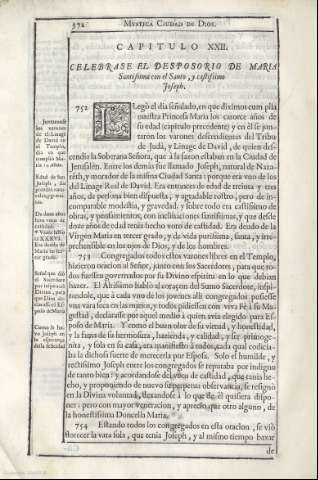 372 MYSTICA CIUDAD DE DIOS.
CAPITULO XXII.
CELEBRASE EL DESPOSORIO DE MARIA
Santissima con el Santo, y castissimo
Joseph.
752
LLegò el dia señalado, en que diximos cum plia
nuestra Princesa Maria los catorce años de
su edad (capitulo precedente) y en èl se jun-
taron los varones descendientes del Tribu
de Judà, y Linage de David, de quien des-
cendia la Soberana Señora, que à la sazon estaban en la Ciudad de
Jerusalèn. Entre los demàs fue llamado Joseph, natural de Naza-
rèth, y morador de la misma Ciudad Santa: porque era uno de los
del Linage Real de David. Era entonces de edad de treinta y tres
años, de persona bien dispuesta, y agradable rostro; pero de in-
comparable modestia, y gravedad, y sobre todo era castissimo de
obras, y pensamientos, con inclinaciones santissimas, y que desde
doze años de edad tenia hecho voto de castidad. Era deudo de la
Virgen Maria en tercer grado, y de vida purissima, santa, y irre-
prehensible en los ojos de Dios, y de los hombres.
753 Congregados todos estos varones libres en el Templo,
hizieron oracion al Señor, junto con los Sacerdotes, para que to-
dos fuessen governados por su Divino espiritu en lo que debian
hacer. El Altissimo hablò al coraçon del Sumo Sacerdote, inspi-
randole, que à cada uno de los jovenes allì congregados pusiesse
una vara seca en las manos, y todos pidiessen con viva Fè à su Ma-
gestad, declarasse por aquel medio à quien avia elegido para Es-
poso de Maria. Y como el buen olor de su virtud, y honestidad,
y la fama de su hermosura, hazienda, y calidad, y ser primoge-
nita, y sola en su casa, era manifiesto à todos, cada qual codicia-
ba la dichosa suerte de merecerla por Esposa. Solo el humilde, y
rectissimo Joseph entre los congregados se reputaba por indigno
de tanto bien; y acordandose del voto de castidad, que tenia he-
cho, y proponiendo de nuevo su perpetua observancia, se resignò
en la Divina voluntad, dexandose à lo que de èl quisiera dispo-
ner: pero con mayor veneracion, y aprecio que otro alguno, de
la honestissima Doncella Maria.
754 Estando todos los congregados en esta oracion, se viò
florecer la vara sola, que tenia Joseph, y al mismo tiempo baxar
de
Juntaronse
los varones
de el Linage
de David en
el Templo,
dia en que
cumpliò Ma-
ria 14. años.
Edad de San
Joseph